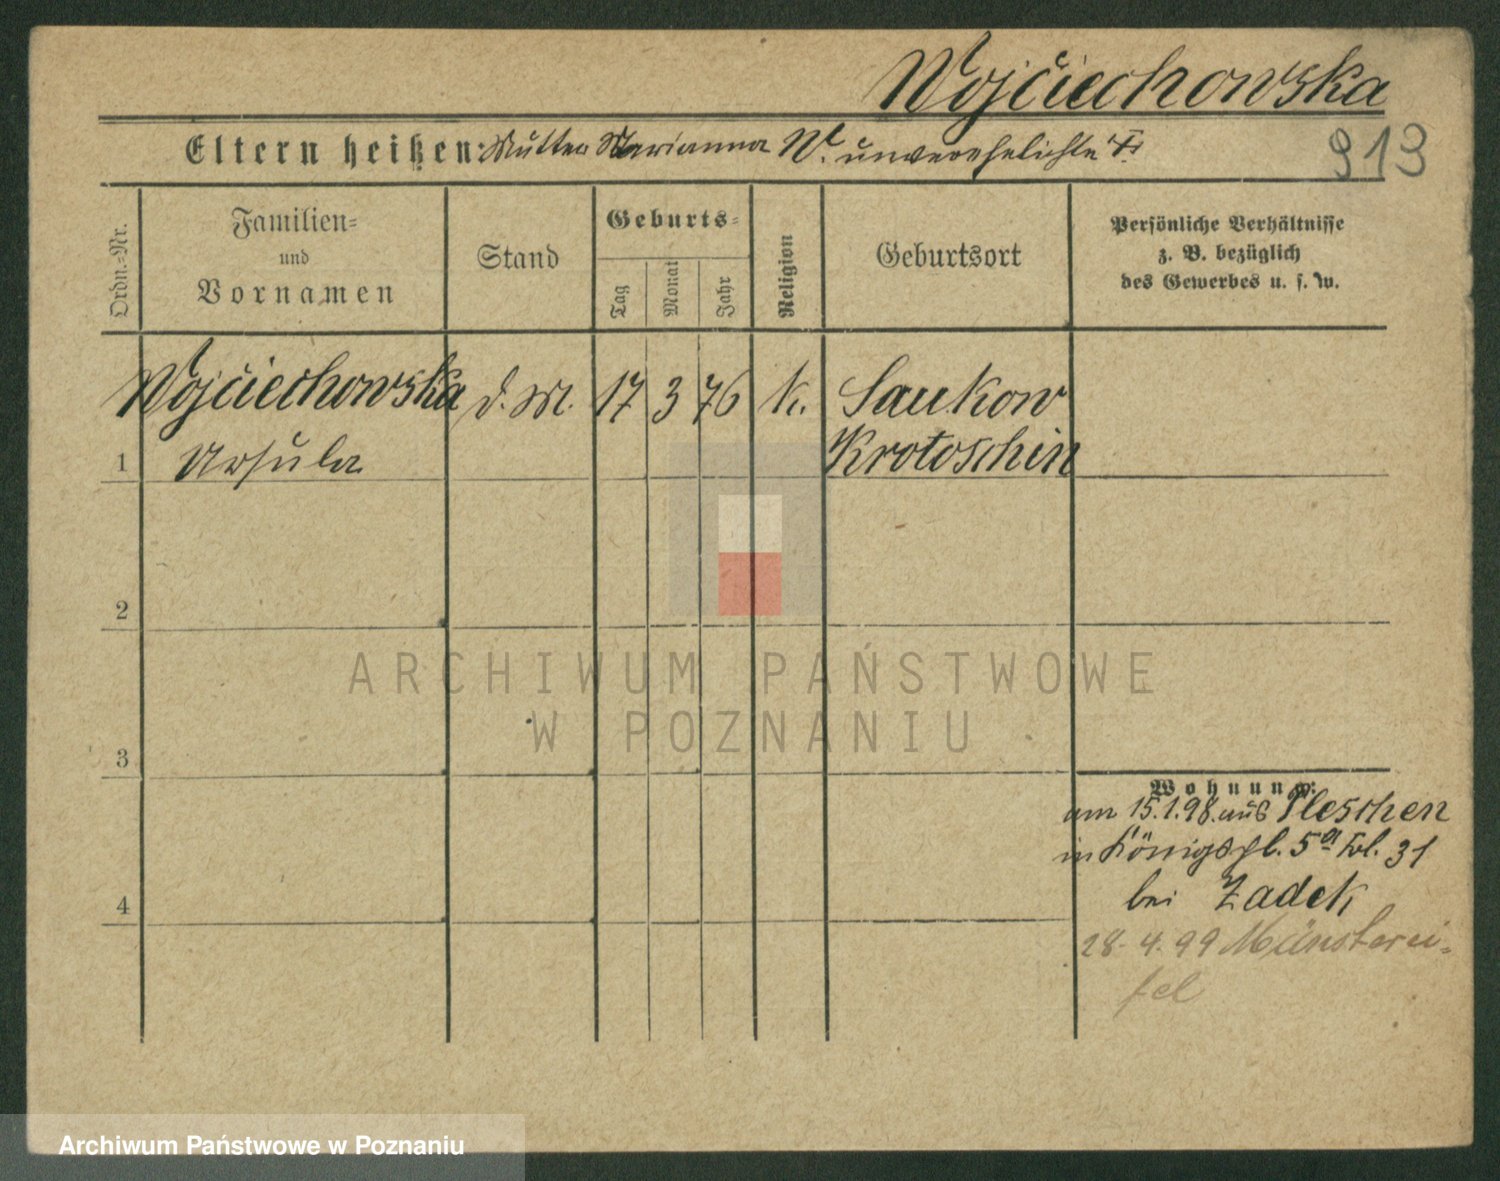 Wojciechowska
Eltern heißen: Mutter Marianna W. unverehelichte
913
Ordn.-Nr.
Familien-
und
Vornamen
Stand
Geburts-
Tag
Monat
Jahr
Religion
Geburtsort
Persönliche Verhältnisse
z. B. bezüglich
des Gewerbes u. s. w.
Wojciechowska d. M. 17 3 76 k. Saukow
1 Ursula Krotoschin
2
3
4
Wohnung:
am 15.1.98. aus Pleschen
in Königspl. 5a 31
bei Zadek
28.4.99 Münsterei-
fel
ARCHIWUM PAŃSTWOWE
W POZNANIU
Archiwum Państwowe w Poznaniu